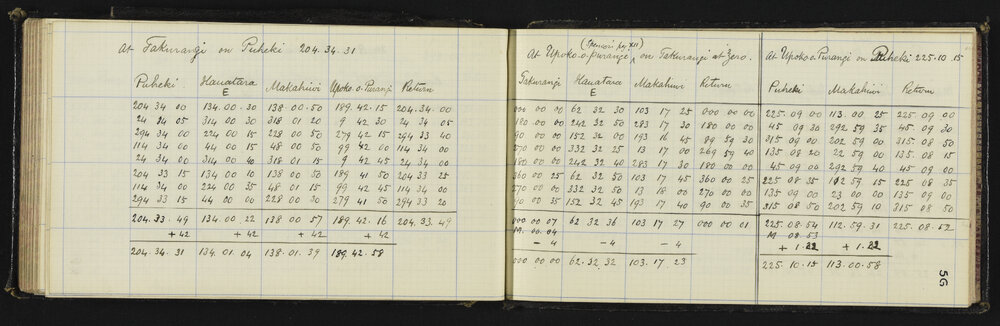 At Takurangi on Puheki 204.34.31
Puheki. Hauatara E Makahiwi Upoko.o.Purangi Return
204 34 00 134.00.30 138 00.50 189.42.15 204.34.00
24 34 05 314 00 30 318 01 20 9 42 30 24 34 05
294 34 00 224 00 15 228 00 50 279 42 15 294 33 40
114 34 00 44 00 15 48 00 50 99 42 00 114 34 00
24 34 00 314 00 40 318 01 15 9 42 45 24 34 00
204 33 15 134 00 10 138 00 50 189 41 50 204 33 25
114 34 00 224 00 35 48 01 15 99 42 45 114 34 00
294 33 15 44 00 00 228 00 30 279 41 50 294 33 20
204.33.49 134.00 22 138 00 57 189.42.16 204.33.49
+ 42 + 42 + 42 + 42
204.34.31 134.01.04 138.01.39 189.42.58
At Upoko.o.Purangi on Takurangi at zero.
Takurangi Hauatara E Makahiwi Return
000 00 00 62 32 30 103 17 25 000 00 00
180 00 00 242 32 50 283 17 30 180 00 00
90 00 00 152 32 00 193 16 45 89 59 30
270 00 00 332 32 25 13 17 00 269 59 40
180 00 00 242 32 40 283 17 30 180 00 00
360 00 25 62 32 50 103 17 45 360 00 25
270 00 00 332 32 50 13 18 00 270 00 00
90 00 35 152 32 45 193 17 40 90 00 35
000 00 07 62 32 36 103 17 27 000 00 01
M. 00.04
- 4 - 4 - 4
000 00 00 62.32.32 103.17.23
At Upoko.o.Purangi on Puheki 225.10.15
Puheki Makahiwi Return
225 09 00 113.00 25 225 09 00
45 09 30 292 59 35 45.09 30
315 09 00 202 59 00 315 08 50
135 08 20 22 59 00 135.08 15
45 09 00 292 59 40 45 09 00
225 08 35 112 59 15 225 08 35
135 09 00 23 00 00 135 09 00
315 08 50 202 59 10 315 08 50
225.08.54 112.59.31 225.08.52
M 08.53
+ 1.22 + 1.22
225.10.15 113.00.58
56